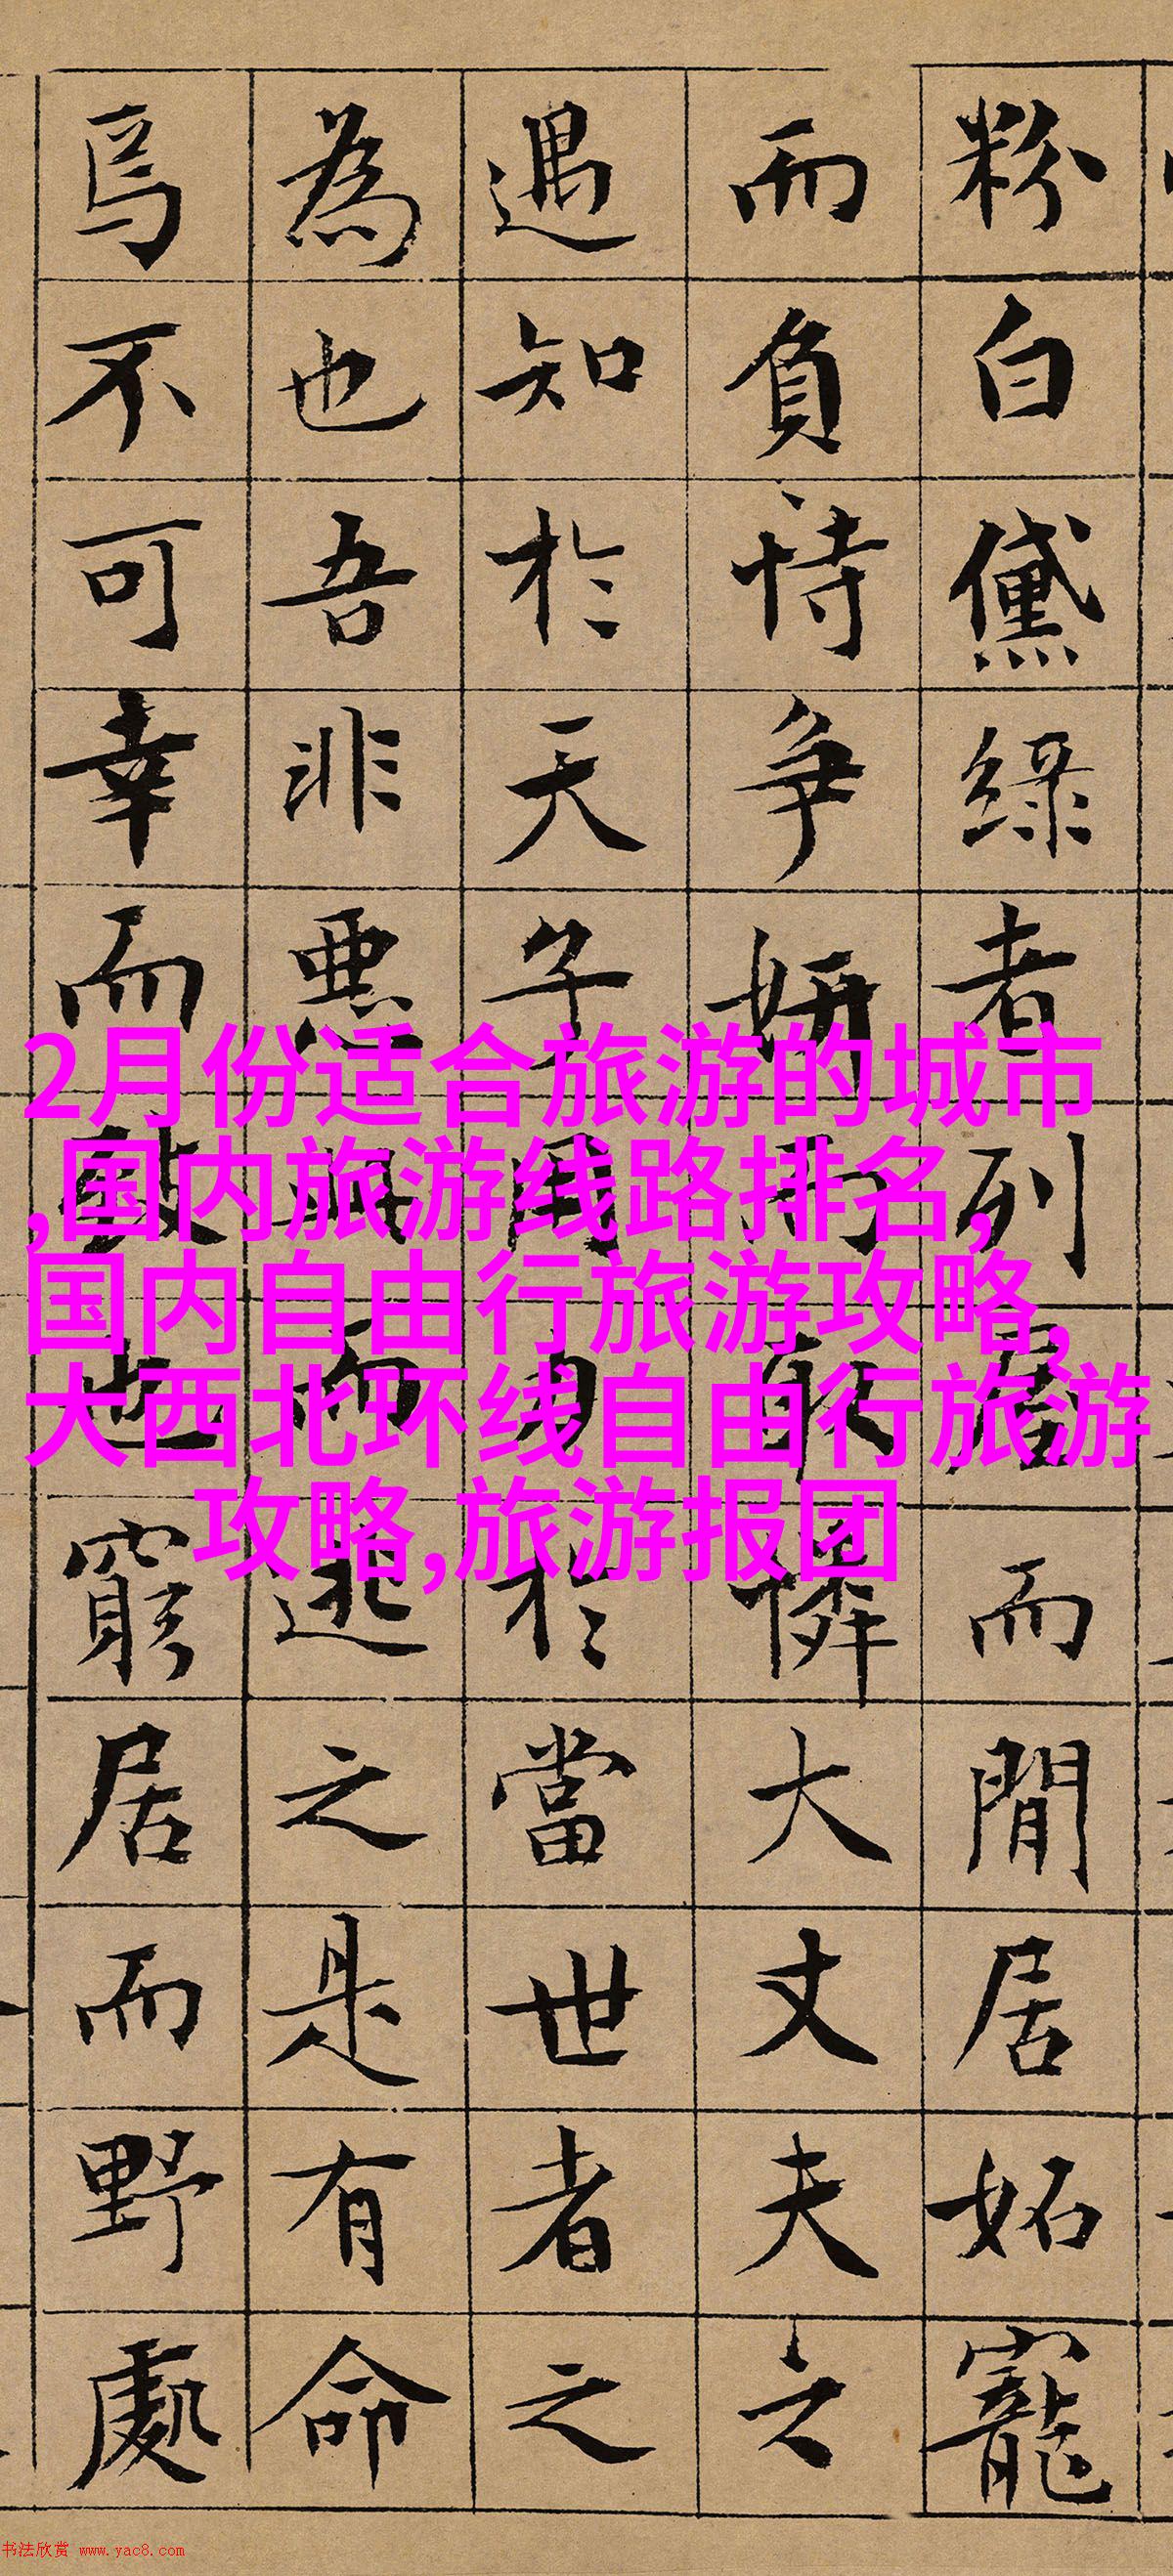 粉白黛綠者列屋而閒居妬寵
而負恃爭妍而取憐大丈夫之
遇知於天子用力於當世者之
為也吾非惡此而逃之是有命
焉不可幸而致也窮居而野處
2月份适合旅游的城市
,国内旅游线路排名,
国内自由行旅游攻略,
大西北环线自由行旅游
攻略,旅游报团
书法欣赏 www.yac8.com